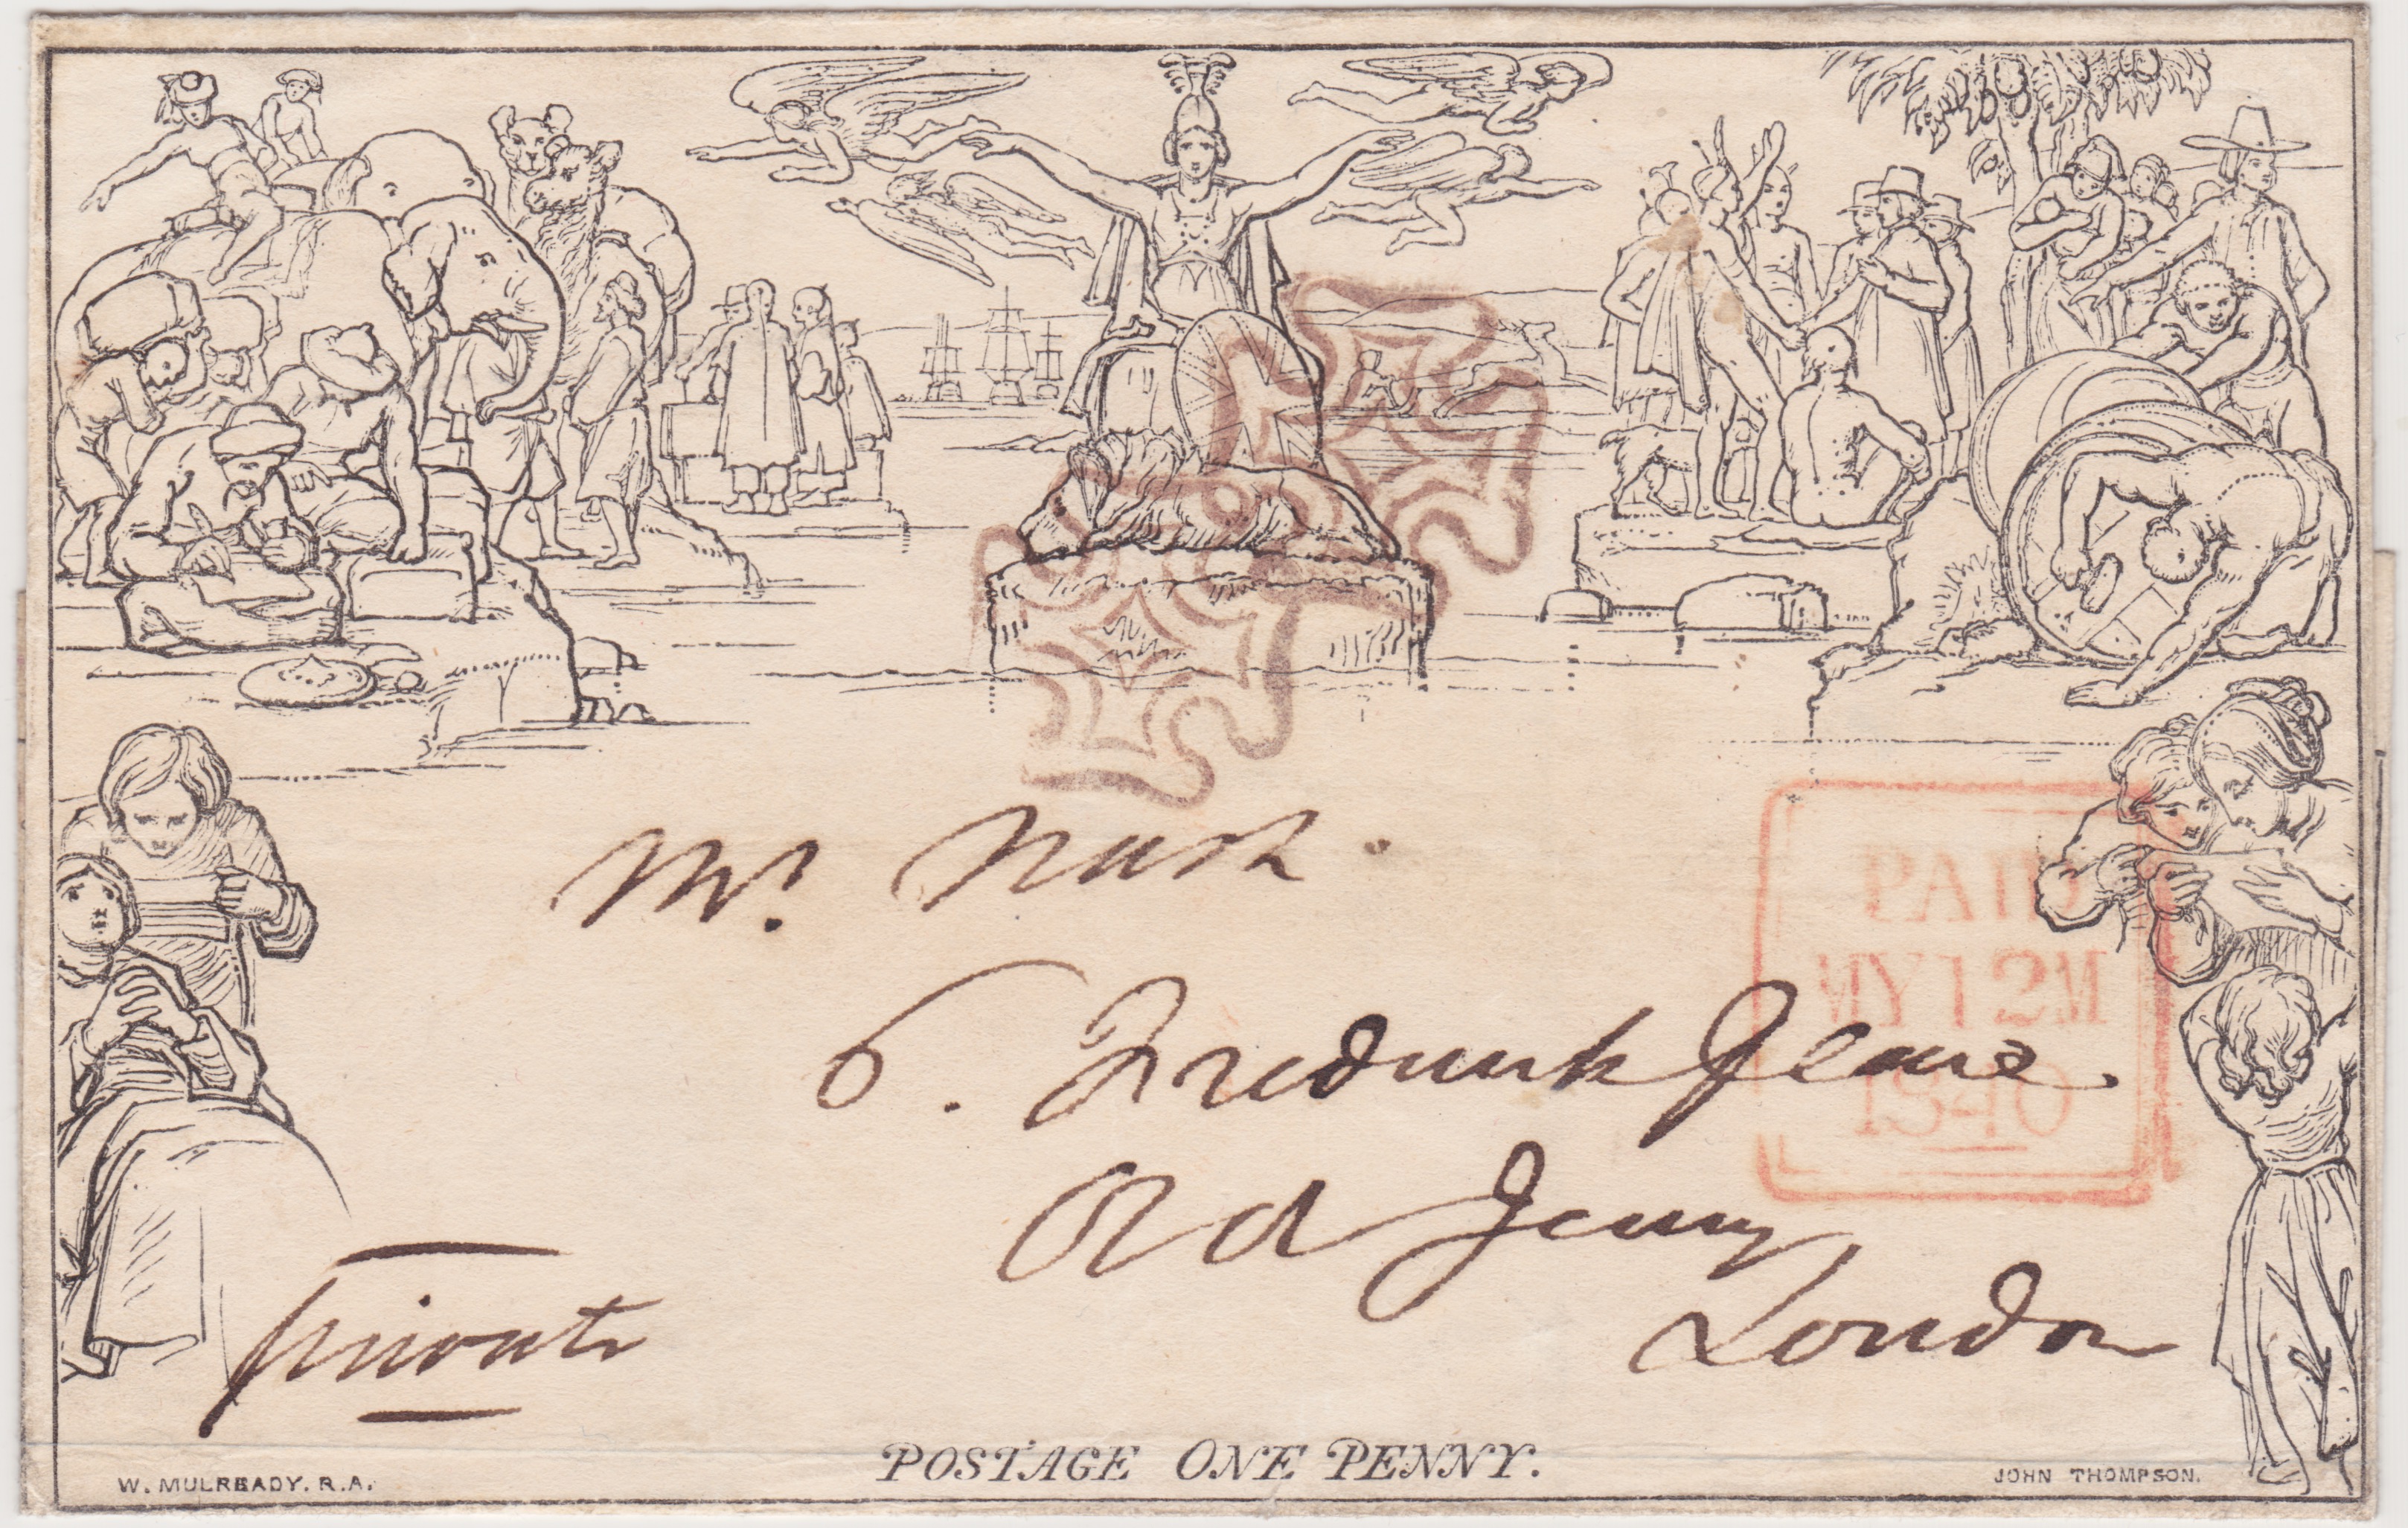 Mr. Nash.
PAID
MY 12 M
1840
6. Frederick Place.
Old Jewry
London
Private
POSTAGE ONE PENNY.
W. MULREADY. R.A.
JOHN THOMPSON.